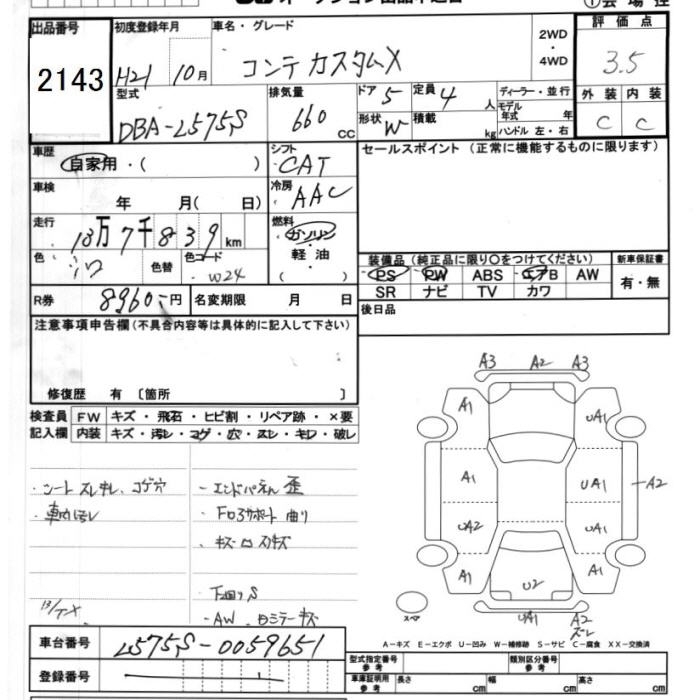 出品番号 初度登録年月 車名・グレード 2WD・4WD 評価点
2143 H21 10月 コンテ カスタムX 3.5
型式 排気量 ドア 5 定員 4 人 ディーラー・並行 外装 内装
DBA-L575S 660 cc 形状 W 積載 kg モデル年式 年 C C
ハンドル 左・右
車歴 自家用・( ) シフト CAT セールスポイント (正常に機能するものに限ります)
車検 年 月( 日) 冷房 AAC
走行 13万7千839km 燃料 ガソリン・軽油 ( )
色 シロ 色替 色コード W24
装備品 (純正品に限り○をつけてください) 新車保証書
PS PW ABS エアB AW 有・無
SR ナビ TV カワ
R券 8960-円 名変期限 月 日 後日品
注意事項申告欄(不具合内容等は具体的に記入して下さい)
修復歴 有 〔箇所 〕
検査員 FW キズ・飛石・ヒビ割・リペア跡・×要
記入欄 内装 キズ・汚レ・コゲ・穴・スレ・キレ・破レ
・シート スレ キレ、コゲ穴
・車内汚レ
・エンドパネル 歪
・Fロアサポート 曲り
・キズ
下回り S
・AW、ミラー キズ
A3 A2 A3
A1 UA1
A1 UA1 A2
UA2 UA1
A1 A1
U2
スペア UA1 A2
ズレ
A-キズ E-エクボ U-凹み W-補修跡 S-サビ C-腐食 XX-交換済
車台番号 L575S-0059651
登録番号
型式指定番号 参考 類別区分番号 参考
車庫証明用 参考 長さ cm 幅 cm 高さ cm